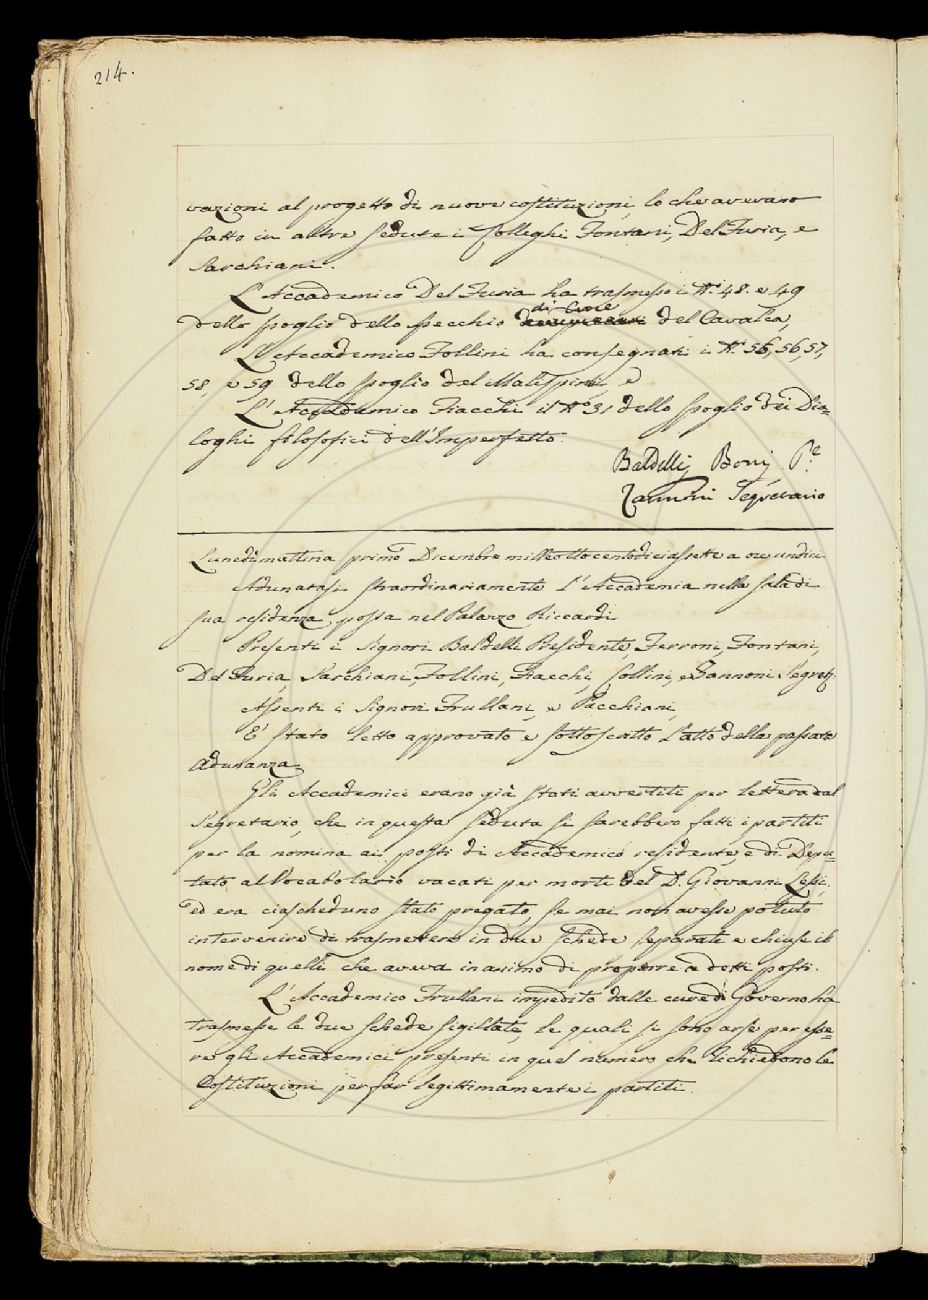 214.
vazioni al progetto di nuove costituzioni, lo che avevano
fatto in altre sedute i Colleghi Fontani, Del Furia, e
Sarchiani.
L'Accademico Del Furia ha trasmesso i N.i 48. e 49
dello spoglio dello specchio di Croce del Cavalca,
L'Accademico Follini ha consegnati i N.i 56, 56, 57,
58, e 59 dello spoglio del Malispini, e
L'Accademico Fiacchi il N.o 31 dello spoglio dei Dia=
loghi filosofici dell'Imperfetto.
Baldelli Boni P.e
Zannoni Segretario
Lunedì mattina primo Dicembre milleottocentodiciassette a ore undici
Adunatasi straordinariamente l'Accademia nella sala di
sua residenza, posta nel Palazzo Riccardi
Presenti i Signori Baldelli Presidente, Ferroni, Fontani,
Del Furia, Sarchiani, Follini, Fiacchi, Collini, e Zannoni Segret.
Assenti i Signori Frullani, e Pacchiani,
E' stato letto approvato e sottoscritto l'atto della passata
adunanza.
Gli Accademici erano già stati avvertiti per lettera dal
Segretario, che in questa seduta si sarebbero fatti i partiti
per la nomina ai posti di Accademico residente, e di Depu=
tato al Vocabolario vacati per morte del D. Giovanni Lessi,
ed era ciascheduno stato pregato, se mai non avesse potuto
intervenire di trasmettere in due schede separate e chiuse il
nome di quelli che aveva in animo di proporre a detti posti.
L'Accademico Frullani impedito dalle cure di Governo ha
trasmesse le due schede sigillate, le quali si sono arse per esse=
re gli Accademici presenti in quel numero che richiedono le
Costituzioni per far legittimamente i partiti.